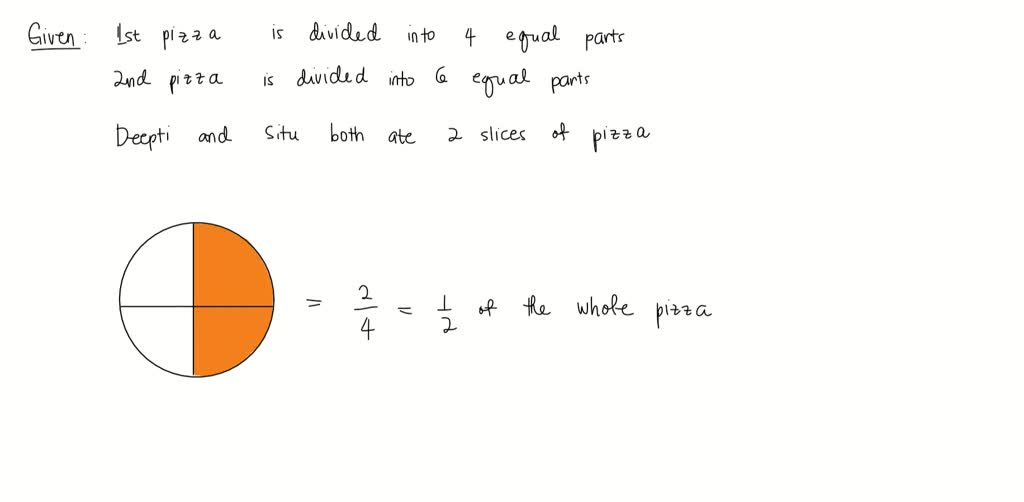 Given: 1st pizza is divided into 4 equal parts
2nd pizza is divided into 6 equal parts
Deepti and Situ both ate 2 slices of pizza
= 2/4 = 1/2 of the whole pizza